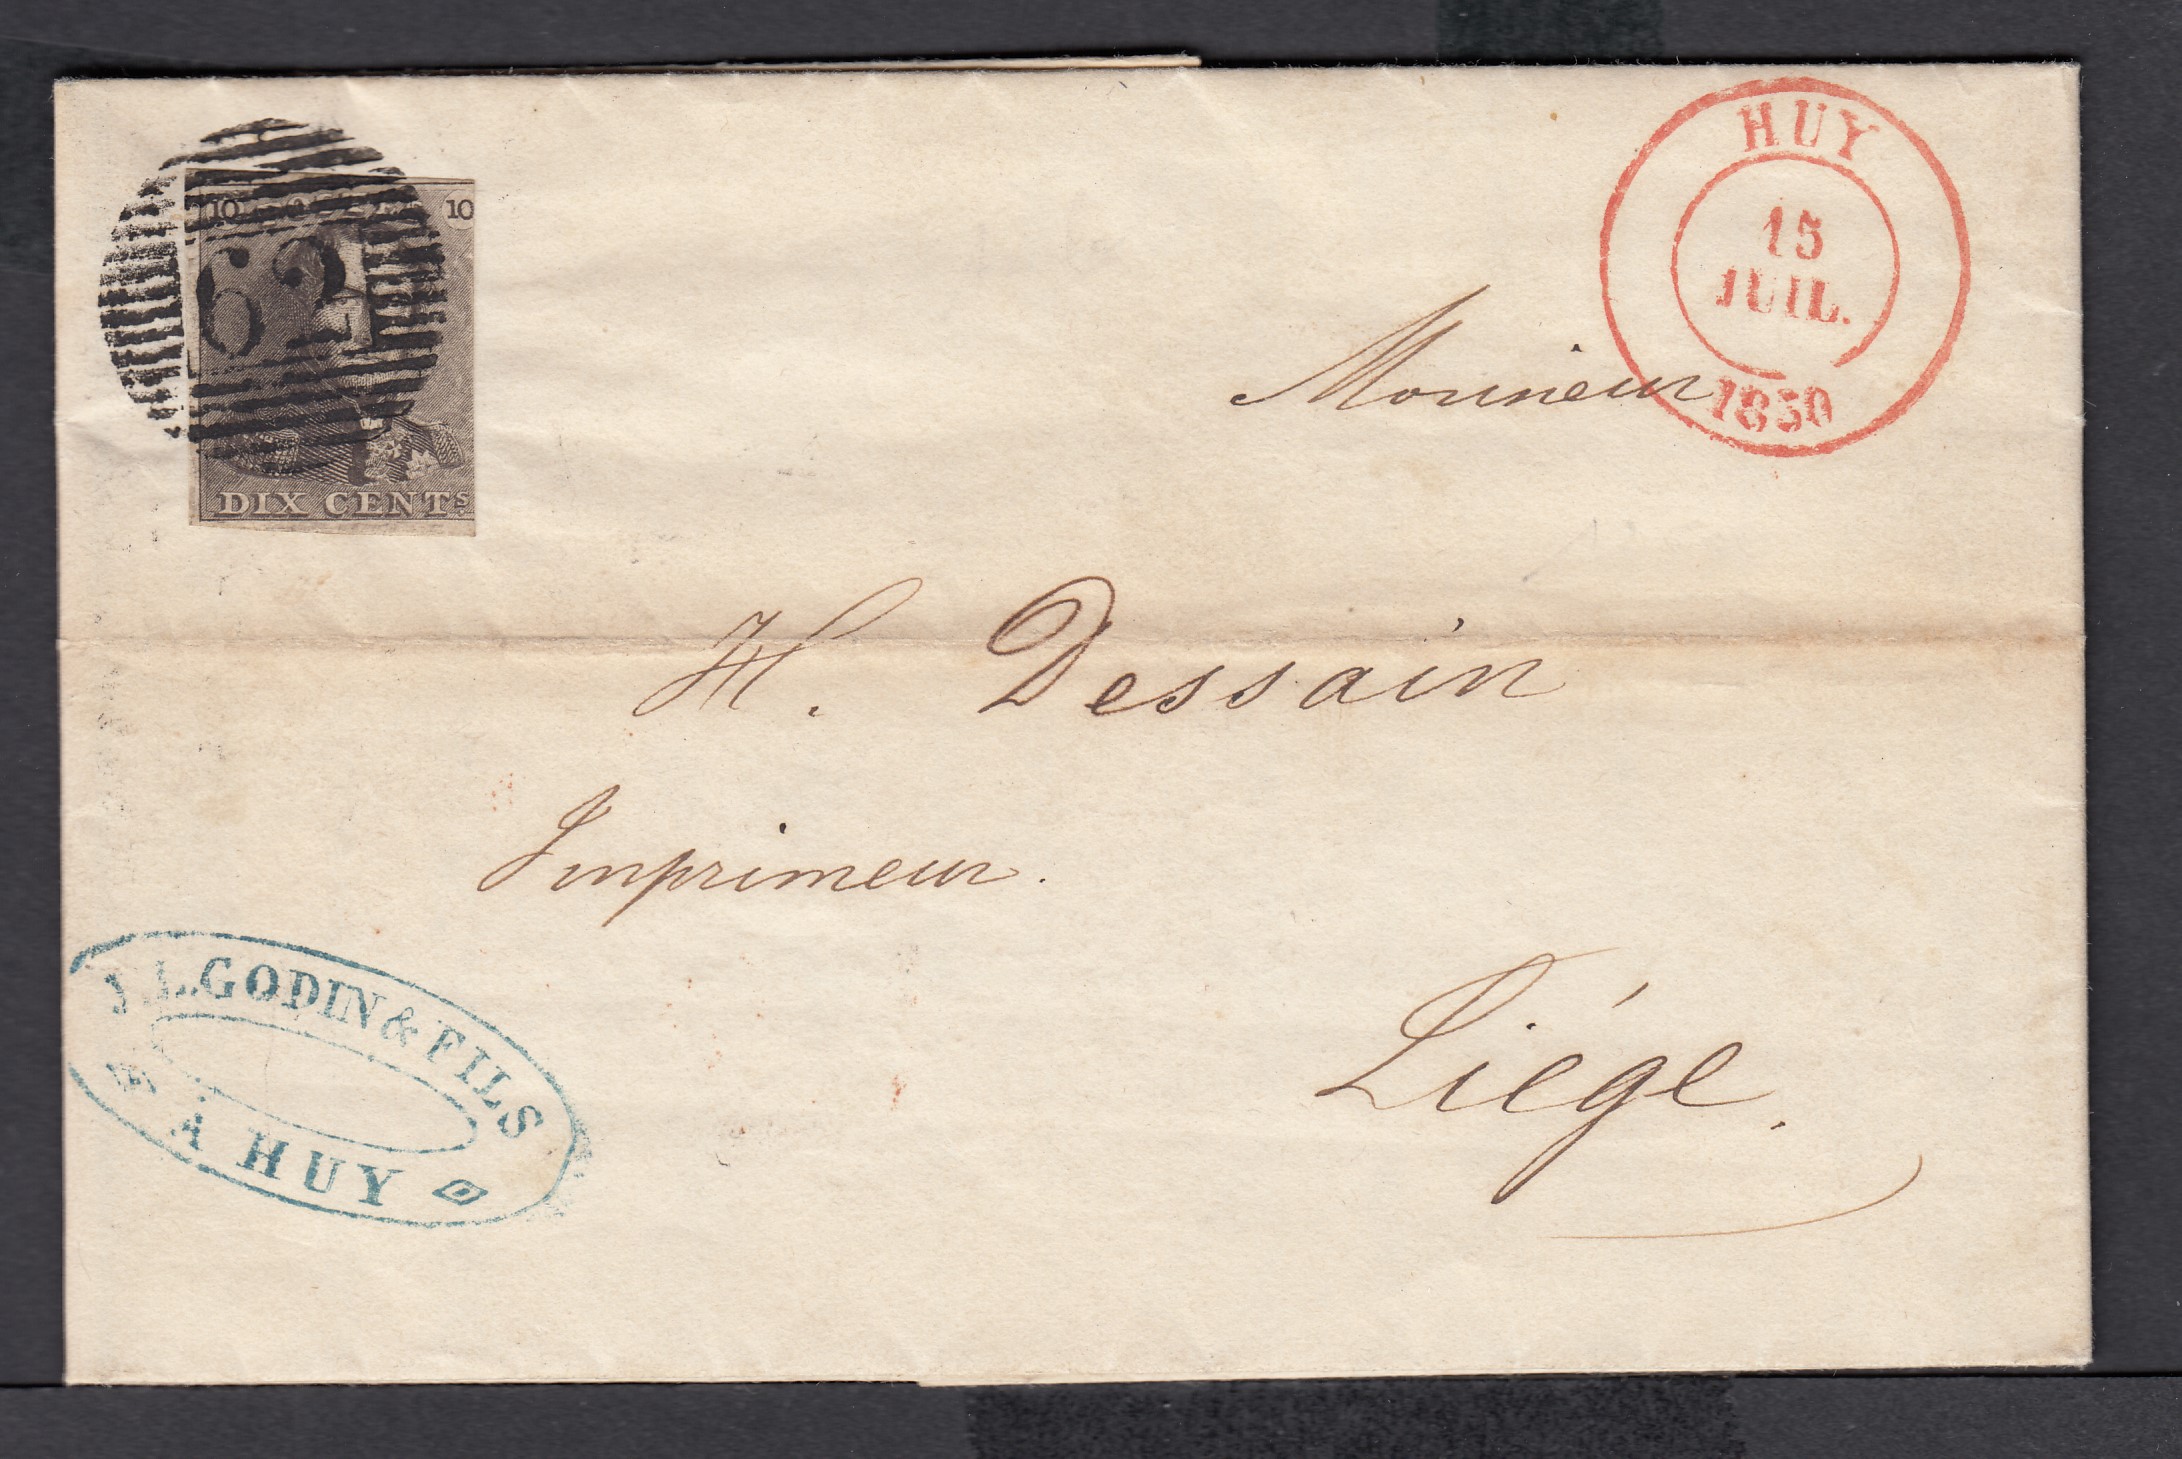 10 10
62
DIX CENTS.
HUY
15
JUIL.
1850
Monsieur
H. Dessain
Imprimeur.
Liége.
J.L. GODIN & FILS
A HUY